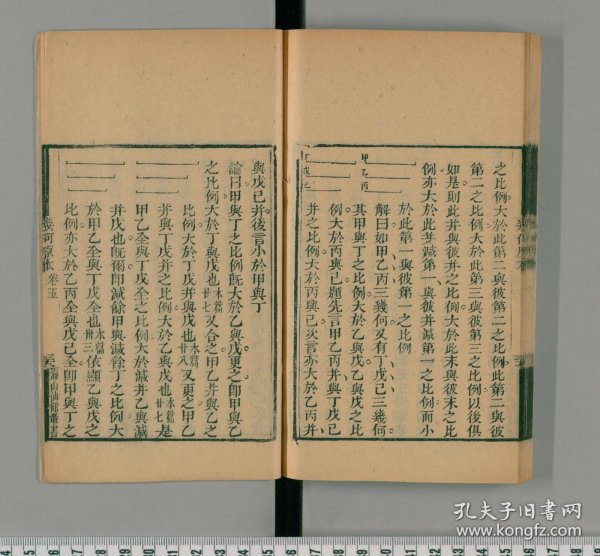 之比例大於此第二與彼第二之比例此第二與彼
第二之比例大於此第三與彼第三之比例以後俱
如是則此并與彼并之比例大於此末與彼末之比
例亦大於此并減第一與彼并減第一之比例而小
於此第一與彼第一之比例
解曰如甲乙丙三幾何又有丁戊己三幾何
其甲與丁之比例大於乙與戊乙與戊之比
例大於丙與己題先言甲乙丙并與丁戊己
并之比例大於丙與己次言亦大於乙丙并
甲乙丙
丁戊己
與戊己并後言小於甲與丁
論曰甲與丁之比例既大於乙與戊更之即甲與乙
之比例大於丁與戊也本篇廿七又合之甲乙并與乙之
比例大於丁戊并與戊也廿八又更之甲乙
并與丁戊并之比例大於乙與戊也本篇廿七是
甲乙全與丁戊全之比例大於減并乙與減
并戊也既爾即減餘甲與減餘丁之比例大
於甲乙全與丁戊全也本篇卅三依顯乙與戊之
比例亦大於乙丙全與戊己全即甲與丁之
幾何原本
幾何原本 卷五
海山仙館叢書
孔夫子旧书网
www.kongfz.com